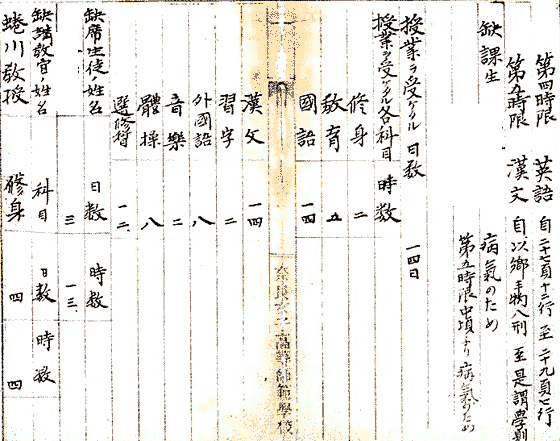 第四時限 英語 自二十七頁十二行 至二十九頁七行
第五時限 漢文 自以鄉三物八刑 至是謂學則
缺課生
病氣のため
第五時限中頃ヨリ病氣のため
授業ヲ受ケタル日數 一四日
授業ヲ受ケタル各科目時數
修身 二
敎育 五
國語 一四
奈良女子高等師範學校
漢文 一四
習字 二
外國語 八
音樂 二
體操 八
選修科 一二
缺席生徒ノ姓名 日數 時數
三 一三
缺講敎官ノ姓名 科目 日數 時數
蜷川敎授 修身 四 四